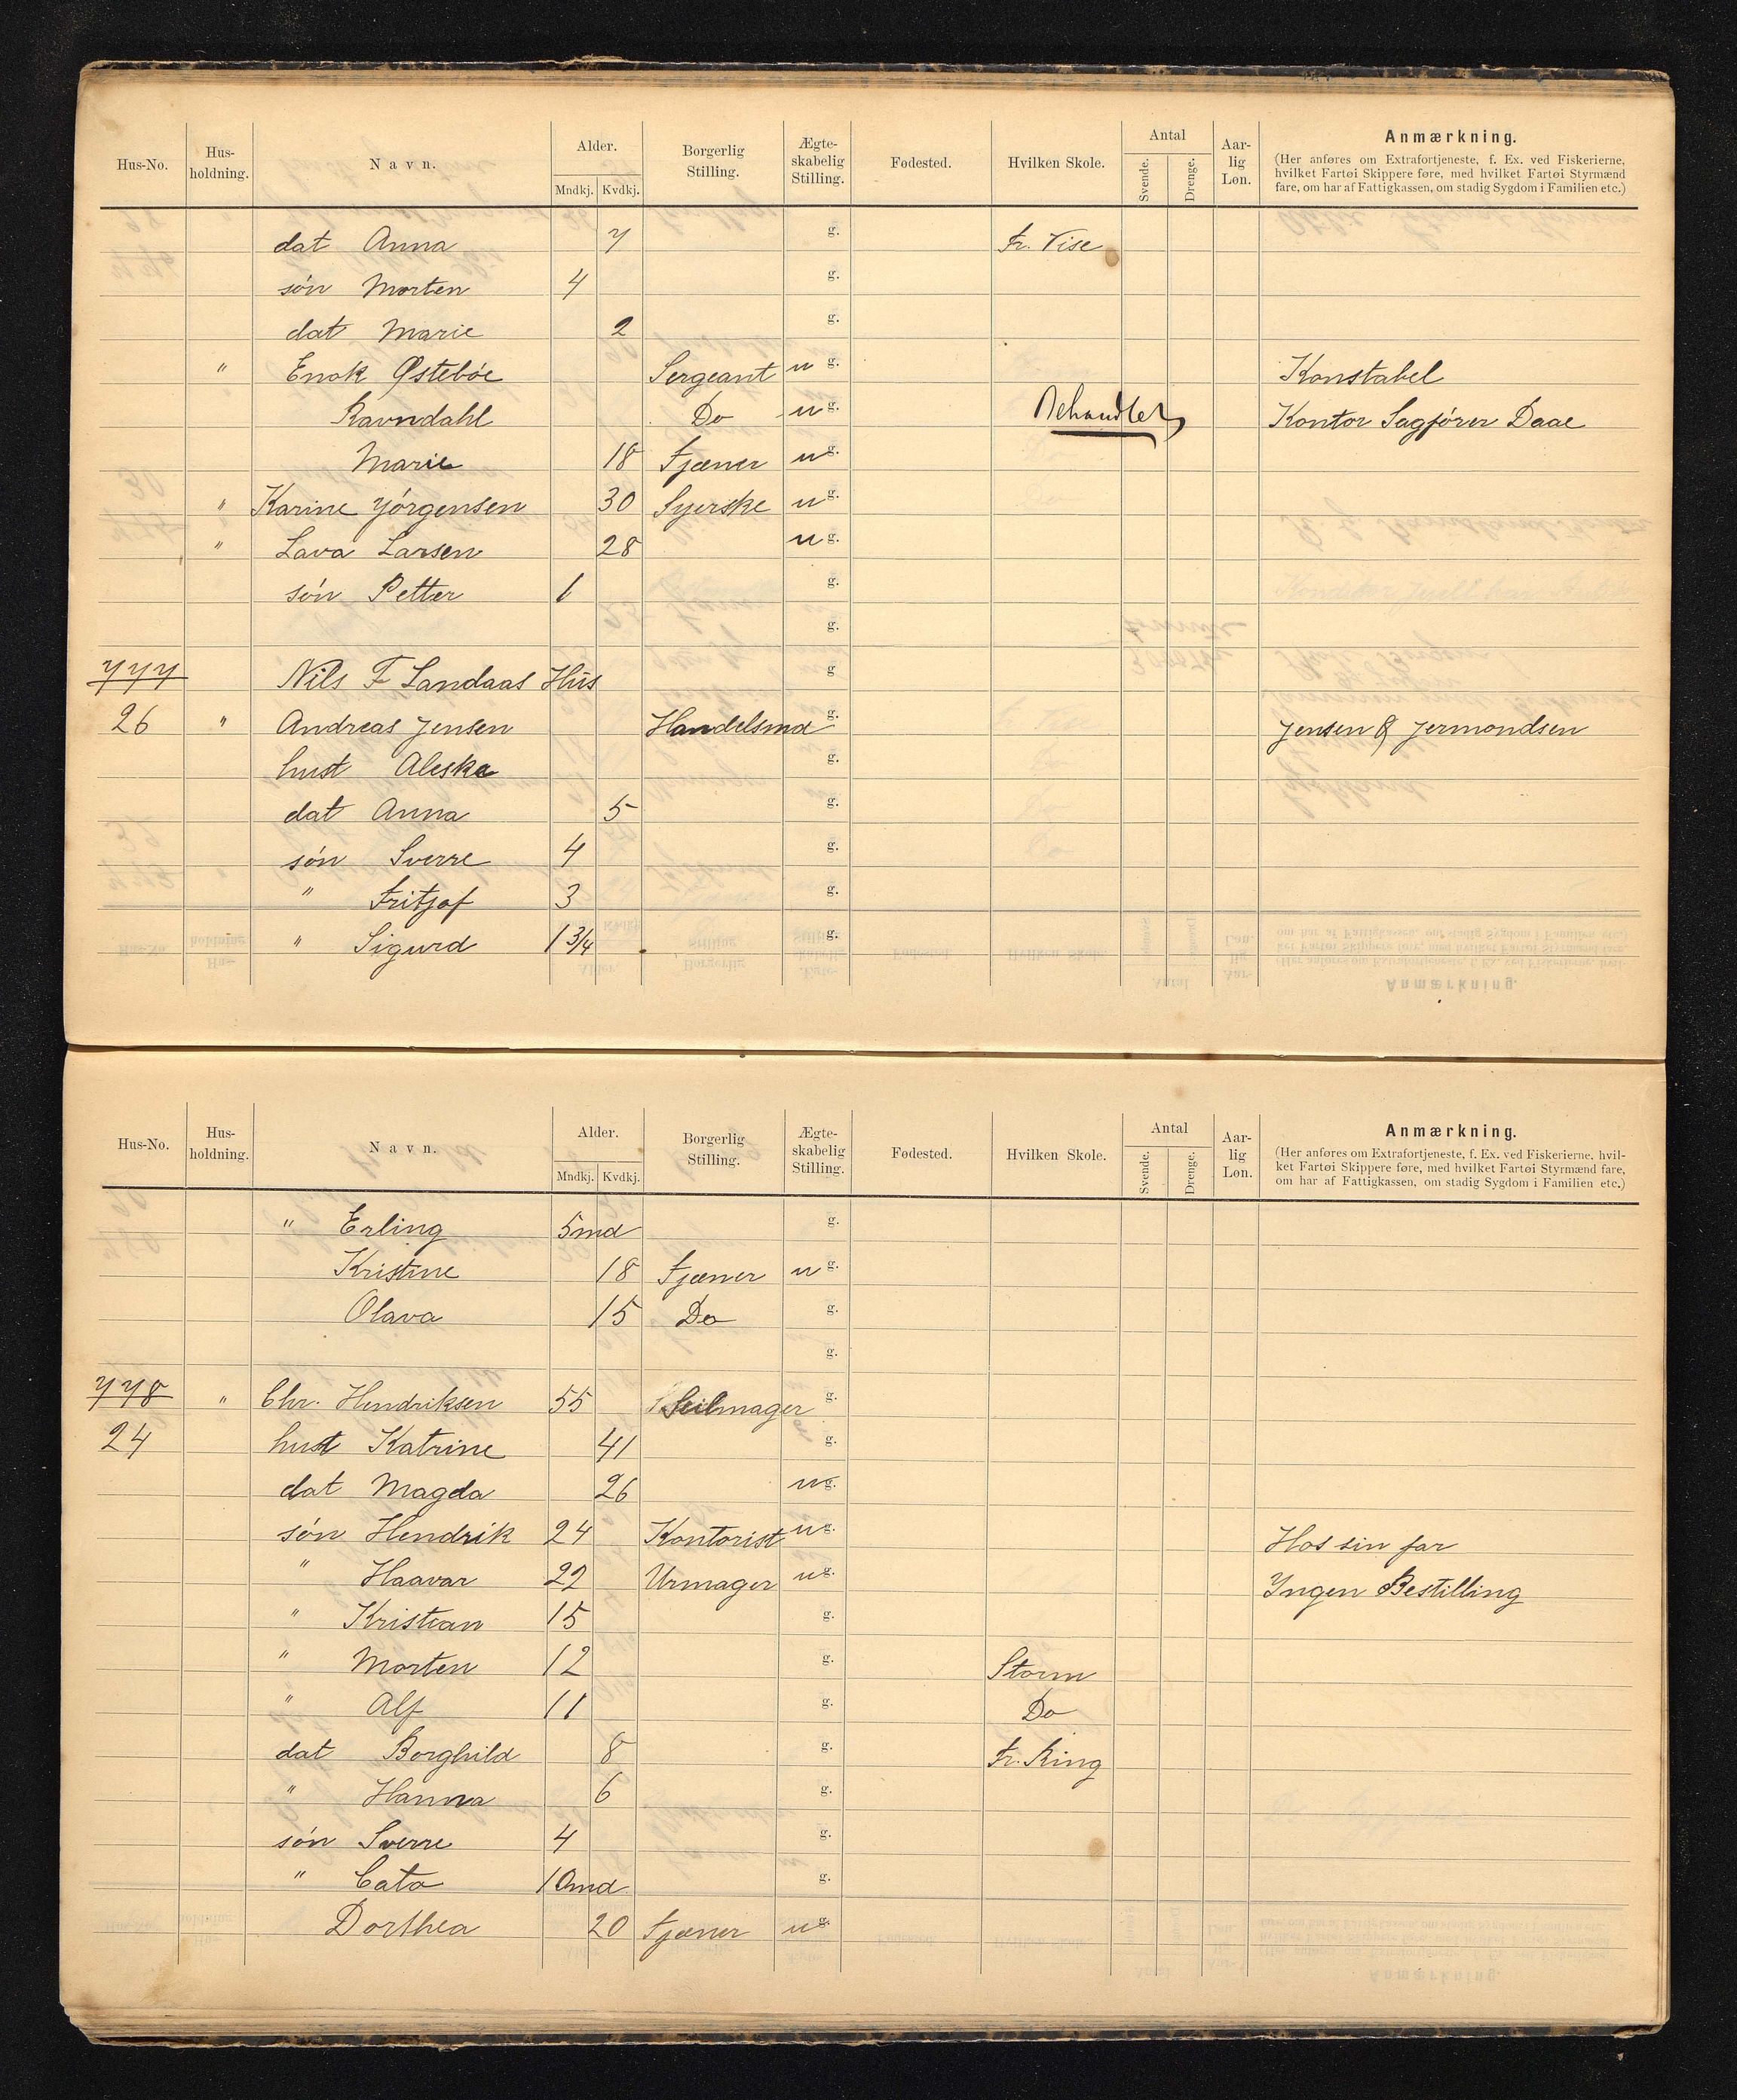 Hus-No. Hus-holdning. Navn. Alder. Mndkj. Kvdkj. Borgerlig Stilling. Ægte-skabelig Stilling. Fødested. Hvilken Skole. Antal Svende. Drenge. Aar-lig Løn. Anmærkning.
(Her anføres om Extrafortjeneste, f. Ex. ved Fiskerierne,
hvilket Fartøi Skippere føre, med hvilket Fartøi Styrmænd
fare, om har af Fattigkassen, om stadig Sygdom i Familien etc.)
dat Anna 7 g. Fr. Vise
søn Morten 4 g.
dat Marie 2 g.
" Enok Østebøe Sergeant u g. Konstabel
Ravndahl Do u g. Behandlet Kontor Sagfører Daae
Marie 18 Tjæner u g.
" Karine Jørgensen 30 Syerske u g.
" Lava Larsen 28 u g.
søn Petter 1 g.
g.
777 Nils F Landaas Hus g
26 " Andreas Jensen Handelsmd g. Jensen & Jermondsen
hust Aleska g.
dat Anna 5 g.
søn Sverre 4 g.
" Fritjof 3 g.
" Sigurd 1 3/4 g.
Hus-No. Hus-holdning. Navn. Alder. Mndkj. Kvdkj. Borgerlig Stilling. Ægte-skabelig Stilling. Fødested. Hvilken Skole. Antal Svende. Drenge. Aar-lig Løn. Anmærkning.
(Her anføres om Extrafortjeneste, f. Ex. ved Fiskerierne, hvil-
ket Fartøi Skippere føre, med hvilket Fartøi Styrmænd fare,
om har af Fattigkassen, om stadig Sygdom i Familien etc.)
" Erling 5md g.
Kristine 18 Tjæner u g.
Olava 15 Do g.
g.
778 " Chr. Hendriksen 55 Seilmager g.
24 hust Katrine 41 g.
dat Magda 26 u g.
søn Hendrik 24 Kontorist u g. Hos sin far
" Haavar 22 Urmager u g. Yngen Bestilling
" Kristian 15 g.
" Morten 12 g. Storm
" Alf 11 g. Do
dat Borghild 8 g. Fr. Ring
" Hanna 6 g.
søn Sverre 4 g.
" Cato 10md g.
Dorthea 20 Tjæner u g.